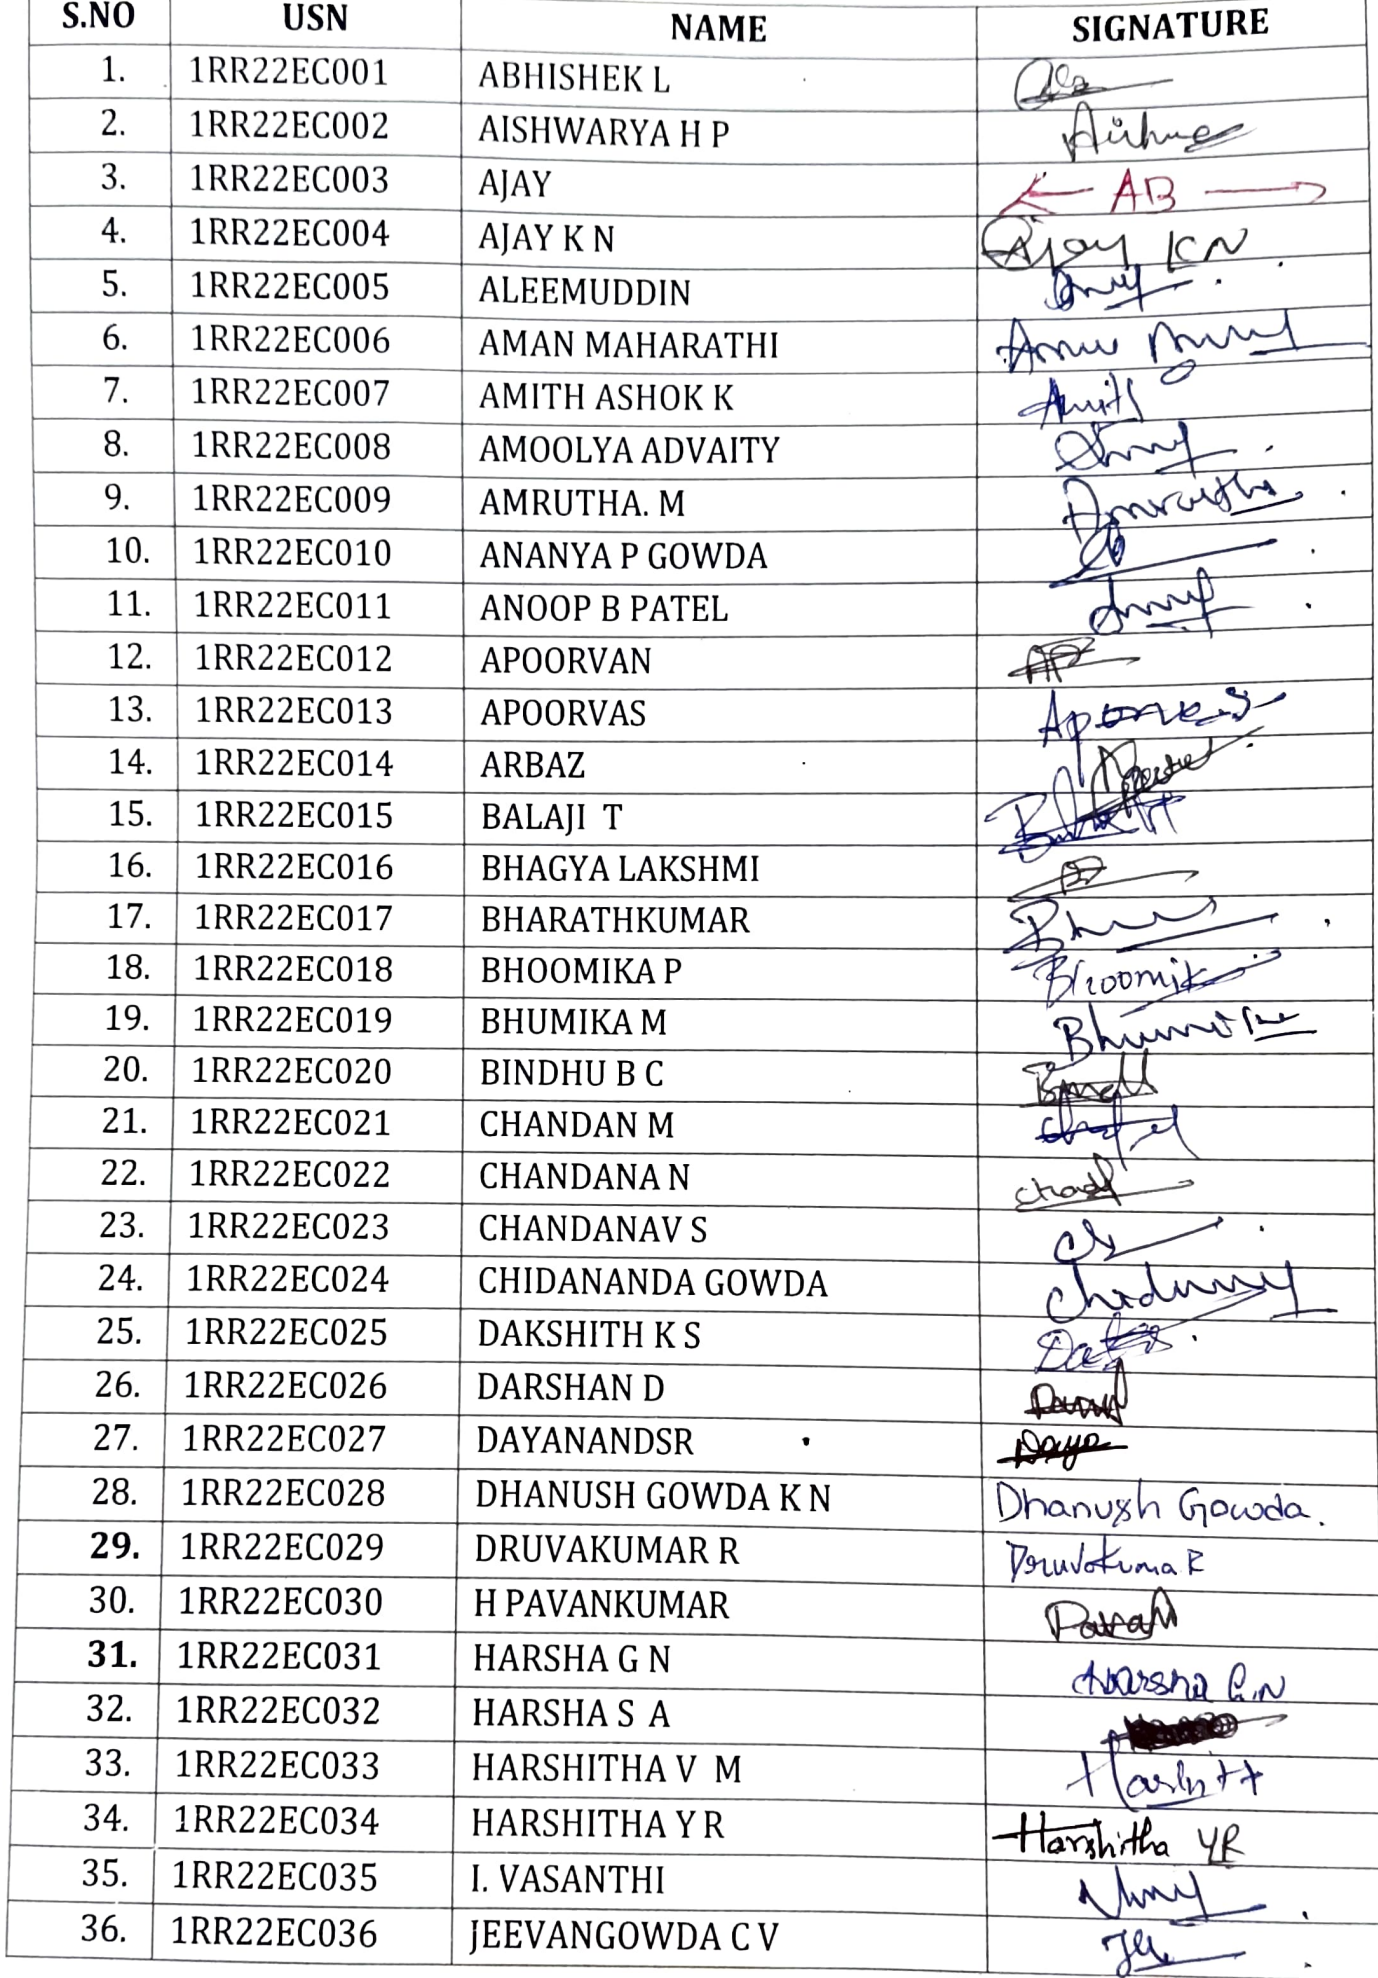 S.NO USN NAME SIGNATURE
1. 1RR22EC001 ABHISHEK L
2. 1RR22EC002 AISHWARYA H P
3. 1RR22EC003 AJAY AB
4. 1RR22EC004 AJAY K N Ajay KN
5. 1RR22EC005 ALEEMUDDIN
6. 1RR22EC006 AMAN MAHARATHI
7. 1RR22EC007 AMITH ASHOK K Amith
8. 1RR22EC008 AMOOLYA ADVAITY
9. 1RR22EC009 AMRUTHA. M Amrutha
10. 1RR22EC010 ANANYA P GOWDA
11. 1RR22EC011 ANOOP B PATEL
12. 1RR22EC012 APOORVAN
13. 1RR22EC013 APOORVAS
14. 1RR22EC014 ARBAZ
15. 1RR22EC015 BALAJI T
16. 1RR22EC016 BHAGYA LAKSHMI
17. 1RR22EC017 BHARATHKUMAR
18. 1RR22EC018 BHOOMIKA P
19. 1RR22EC019 BHUMIKA M
20. 1RR22EC020 BINDHU B C
21. 1RR22EC021 CHANDAN M
22. 1RR22EC022 CHANDANA N
23. 1RR22EC023 CHANDANAV S
24. 1RR22EC024 CHIDANANDA GOWDA
25. 1RR22EC025 DAKSHITH K S
26. 1RR22EC026 DARSHAN D
27. 1RR22EC027 DAYANANDSR Daya
28. 1RR22EC028 DHANUSH GOWDA K N Dhanush Gowda.
29. 1RR22EC029 DRUVAKUMAR R DruvaKumaR
30. 1RR22EC030 H PAVANKUMAR
31. 1RR22EC031 HARSHA G N Harsha G.N
32. 1RR22EC032 HARSHA S A
33. 1RR22EC033 HARSHITHA V M
34. 1RR22EC034 HARSHITHA Y R Harshitha YR
35. 1RR22EC035 I. VASANTHI
36. 1RR22EC036 JEEVANGOWDA C V